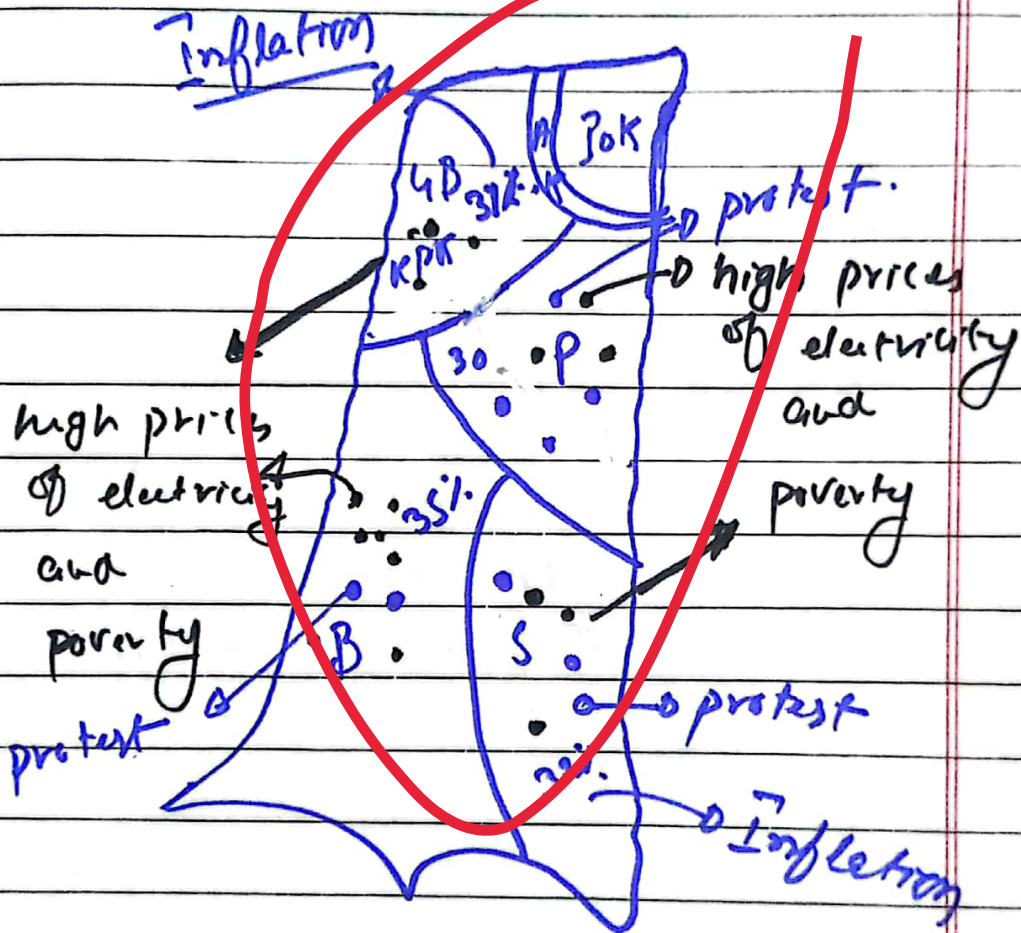 Inflation
30K
A
K
31%.
protest.
KPK
high prices
of electricity
and
poverty
30
P
high prices
of electricity
and
poverty
35%.
B
S
protest
protest
Inflation